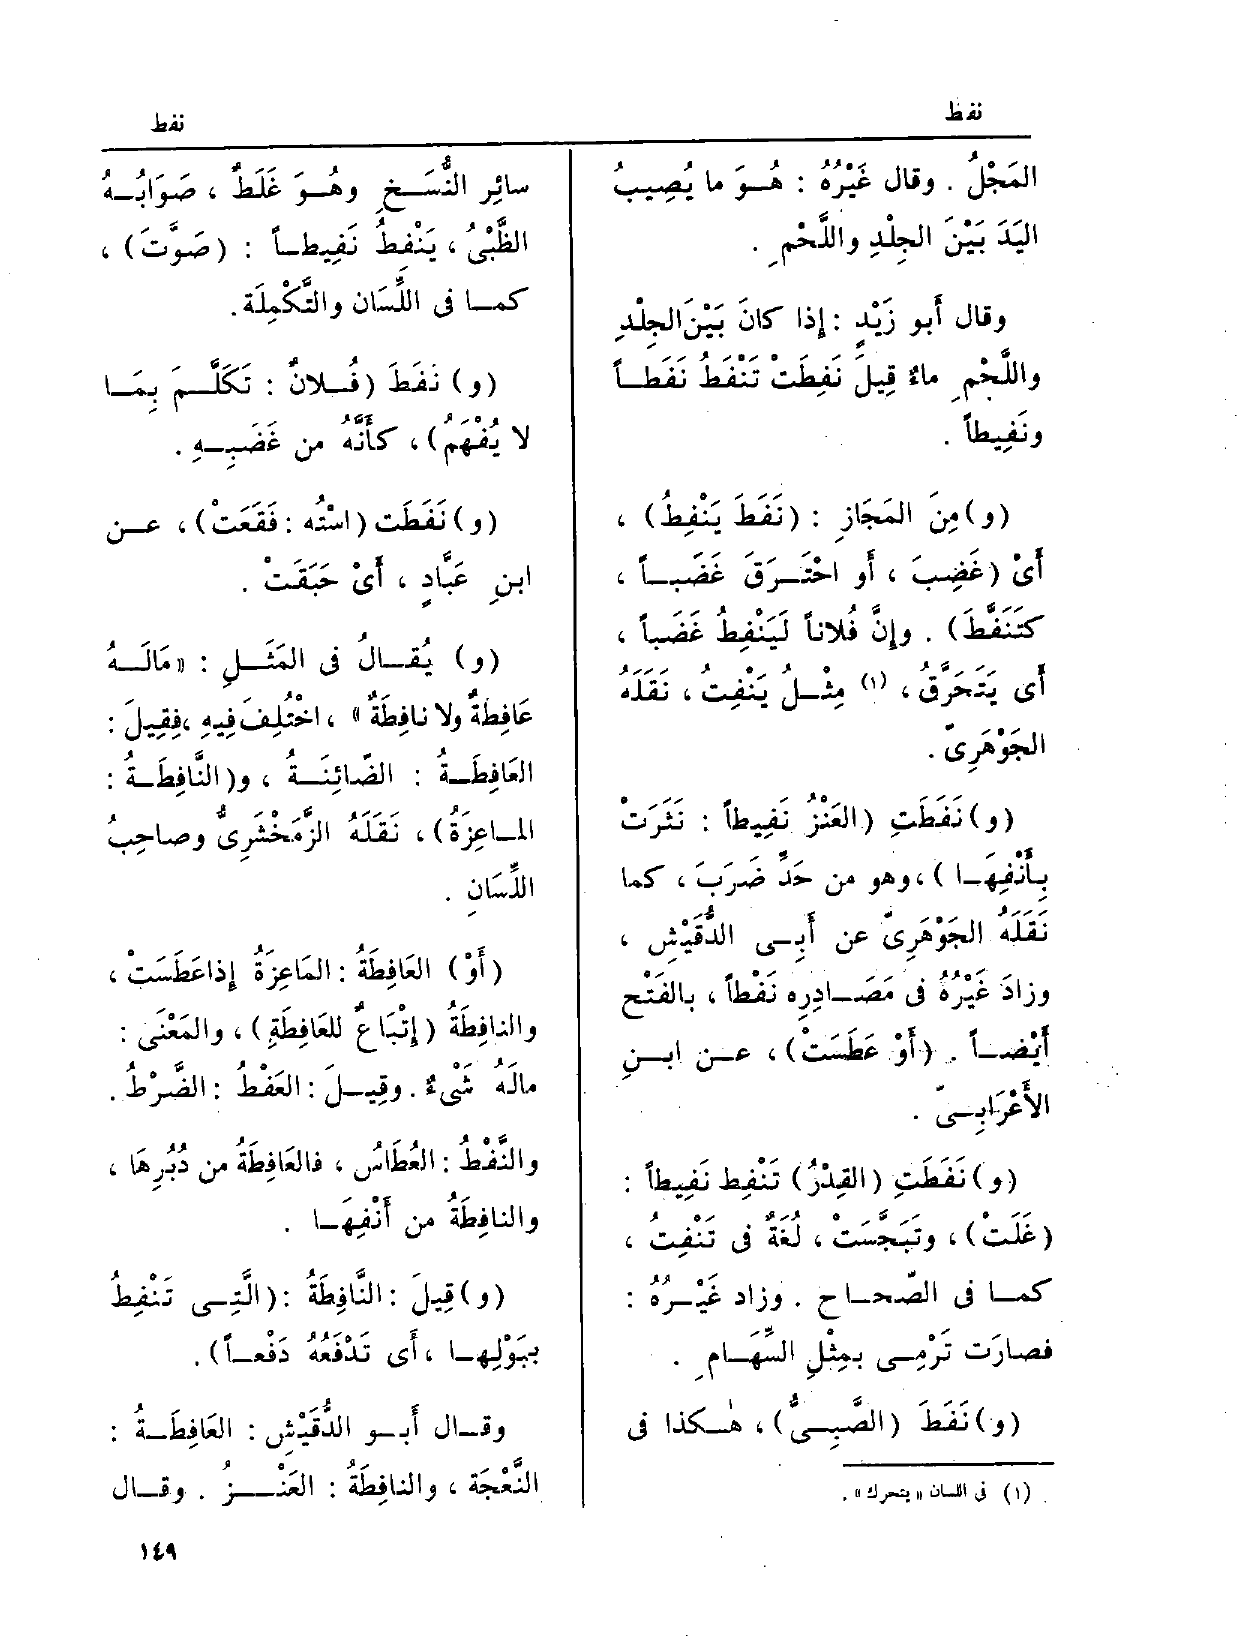 نفط
نفط
المَجْلُ . وقال غَيْرُهُ : هُـوَ ما يُصِيبُ
اليَدَ بَيْنَ الجِلْدِ واللَّحْمِ .
وقال أَبو زَيْدٍ : إِذا كانَ بَيْنَ الجِلْدِ
واللَّحْمِ ماءٌ قِيلَ نَفِطَتْ تَنْفَطُ نَفَطـاً
ونَفِيطاً .
(و) مِنَ المَجَازِ : (نَفَطَ يَنْفِطُ) ،
أَىْ (غَضِبَ ، أَو احْتَـرَقَ غَضَبـاً ،
كتَنَفَّطَ) . وإِنَّ فُلاناً لَيَنْفِطُ غَضَباً ،
أَى يَتَحَرَّقُ ، (١) مِثْـلُ يَنْفِتُ ، نَقَلَهُ
الجَوْهَرِىّ .
(و) نَفَطَتِ (العَنْزُ نَفِيطاً : نَثَرَتْ
بِأَنْفِهَـا ) ، وهو من حَدِّ ضَرَبَ ، كما
نَقَلَهُ الجَوْهَرِىّ عن أَبِـى الدُّقَيْشِ ،
وزادَ غَيْرُهُ فى مَصَـادِرِه نَفْطاً ، بالفَتْح
أَيْضـاً . (أَوْ عَطَسَتْ) ، عـن ابـنِ
الأَعْرَابِـىّ .
(و) نَفَطَتِ (القِدْرُ) تَنْفِط نَفِيطاً :
(غَلَتْ) ، وتَبَجَّسَتْ ، لُغَةٌ فى تَنْفِت ،
كمـا فى الصّحـاح . وزاد غَيْـرُهُ :
فصارَت تَرْمِـى بمِثْلِ السِّهَـامِ .
(و) نَفَطَ (الصَّبِـىُّ) ، هٰـكذا فى
(١) فى اللسان « يتحرك » .
سائِر النُّسَـخِ وهُـوَ غَلَطٌ ، صَوَابُـهُ
الظَّبْىُ ، يَنْفِطُ نَفِيطـاً : (صَوَّتَ) ،
كمـا فى اللِّسَان والتَّكْمِلَة .
(و) نَفَطَ (فُـلانٌ : تَكَلَّـمَ بِمَـا
لا يُفْهَم) ، كأَنَّهُ من غَضَبِـهِ .
(و) نَفَطَت (اسْتُه : فَقَعَتْ) ، عـن
ابنِ عَبَّادٍ ، أَىْ حَبَقَتْ .
(و) يُقـالُ فى المَثَـلِ : « مَالَـهُ
عَافِطَةٌ ولا نافِطَةٌ » ، اختُلِفَ فِيهِ ، فقِيلَ :
العَافِطَـةُ : الضّائِنَـةُ ، و(النَّافِطَـةُ :
المـاعِزَةُ) ، نَقَلَهُ الزَّمَخْشَرِىُّ وصاحِبُ
اللِّسَانِ .
(أَوْ) العَافِطَةُ : المَاعِزَةُ إِذا عَطَسَتْ ،
والنافِطَةُ (إِتْبَاعٌ للعَافِطَةِ) ، والمَعْنَى :
مالَهُ شَىْءٌ . وقِيـلَ : العَفْطُ : الضَّرْطُ .
والنَّفْطُ : العُطَاسُ ، فالعَافِطَةُ من دُبُرِهَا ،
والنافِطَةُ من أَنْفِهَـا .
(و) قِيلَ : النَّافِطَةُ : (الَّتِـى تَنْفِطُ
ببَوْلِهـا ، أَى تَدْفَعُهُ دَفْعـاً) .
وقـال أَبـو الدُّقَيْشِ : العَافِطَـةُ :
النَّعْجَة ، والنافِطَةُ : العَنْـزُ . وقـال
١٤٩